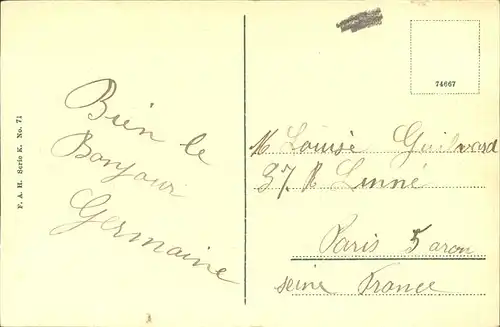 F. A. H. Serie K. No. 71
Bien le
Bonjour
Germaine
74667
Louise
37 R Linné
Paris 5 aron
seine France